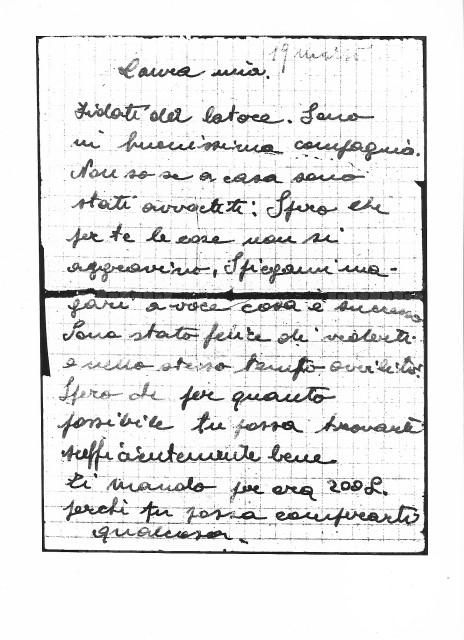 19 marzo
Laura mia.
Fidati del latore. Sono
in buonissima compagnia.
Non so se a casa sono
stati avvertiti: Spero che
per te le cose non si
aggravino, Spiegami ma-
gari a voce cosa è successo
Sono stato felice di vederti
e nello stesso tempo avvilito.
Spero che per quanto
possibile tu possa trovarti
sufficientemente bene
Ti mando per ora 200 L.
perchè tu possa comperarti
qualcosa.